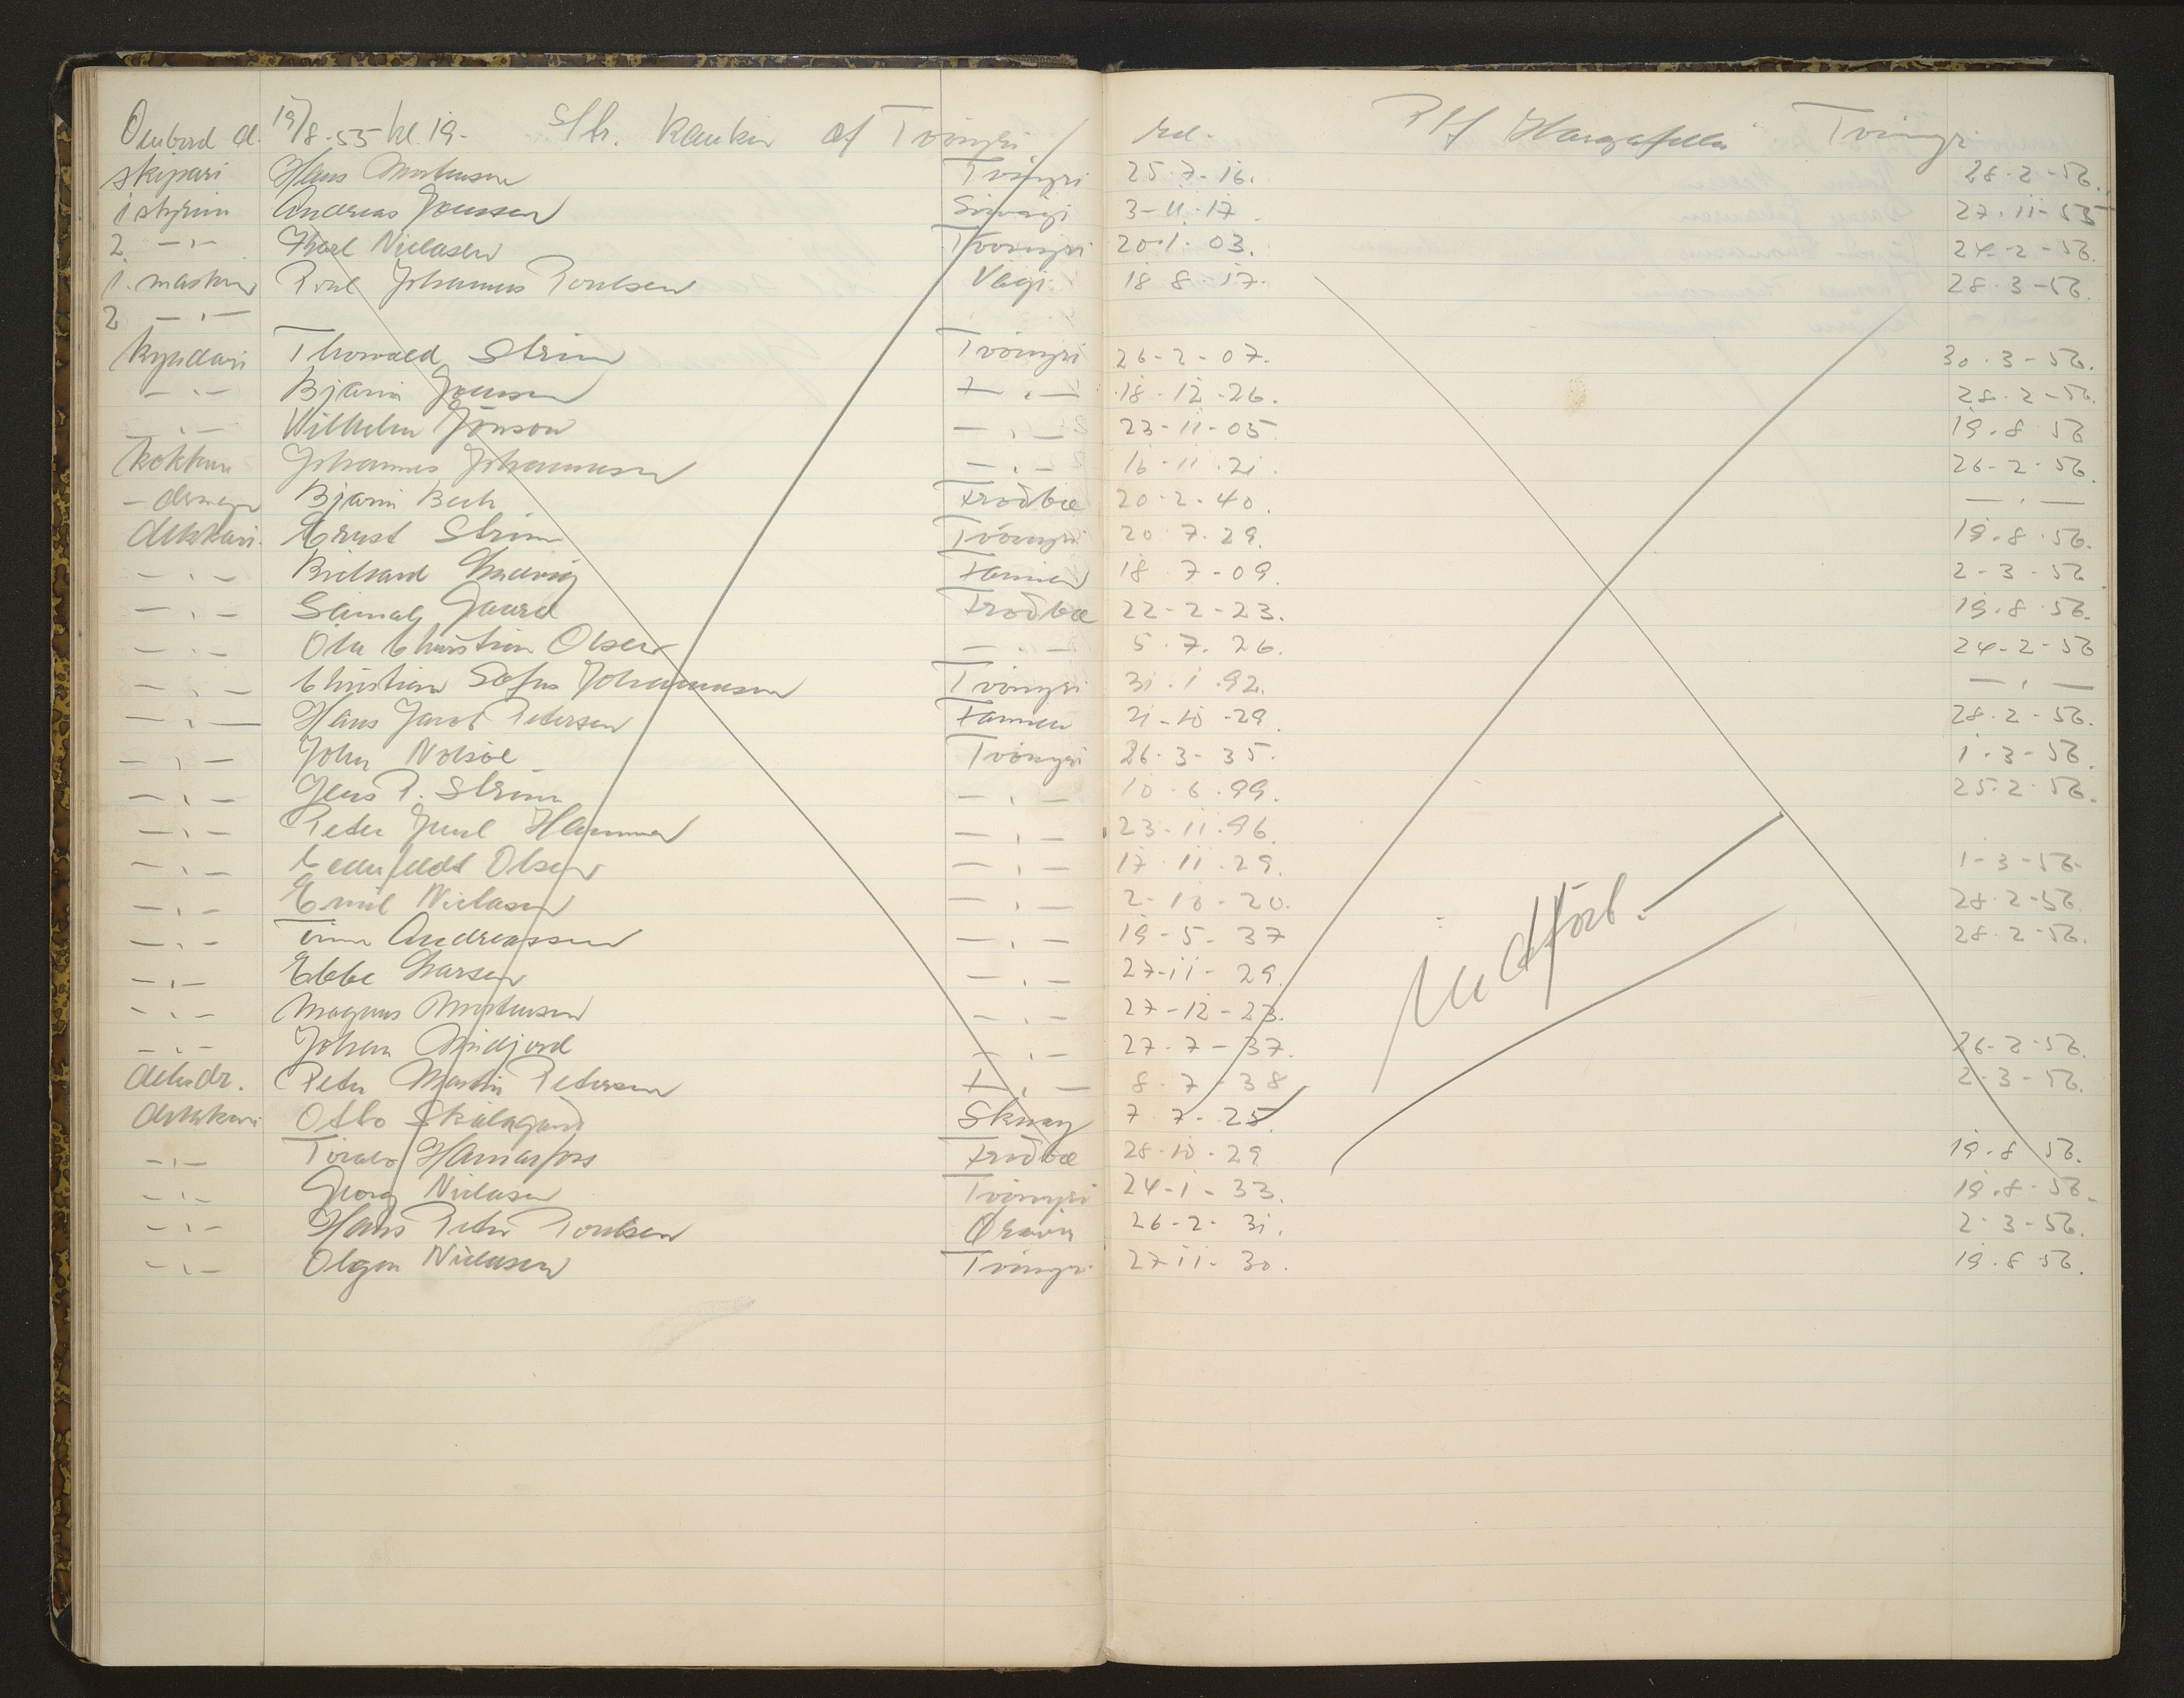 Ombord d. 19/8-55 kl. 19- S/tr. af Tvöroyri P/f Tvöroyri
skipari Hans Mortensen Tvöroyri 25-7-16. 28-2-56.
1 styrim Andreas Joensen 3-11-17. 27-11-55
2 -"- Karl Nielasen Tvöroyri 20-1-03. 24-2-56.
1. maskin Poul Johannus Poulsen Vági 18-8-17. 28-3-56.
2 -"-
kyndari Thorvald Strim Tvöroyri 26-2-07. 30-3-56.
-"- Bjarni Joensen -"- 18-12-26. 28-2-56.
-"- Wilhelm Jönson -"- 23-11-05. 19-8-56
kokkur Johannes Johannesen -"- 16-11-21. 26-2-56.
Bjarni Bech Froðbæ 20-2-40. -"-
dekkari Ernst Strim Tvöroyri 20-7-29. 19-8-56.
-"- Richard Ludvig Famien 18-7-09. 2-3-56
-"- Sámal Gaard Froðbæ 22-2-23. 19-8-56.
-"- Ola Christian Olsen -"- 5-7-26. 24-2-56
-"- Christian Sofus Johannesen Tvöroyri 31-1-92. -"-
-"- Hans Jacob Petersen 21-10-29. 28-2-56.
-"- John Nolsöe Tvöroyri 26-3-35. 1-3-56.
-"- Jens P. Strim -"- 10-6-99. 25-2-56.
-"- Peter Juul Hammer -"- 23-11-96.
-"- Olsen -"- 17-11-29. 1-3-56-
-"- Emil Nielasen -"- 2-10-20. 28-2-56.
-"- Andreassen -"- 19-5-37 28-2-56.
-"- Ebbe Larsen -"- 27-11-29.
-"- Magnus Mortensen -"- 27-12-23.
-"- Johan Mindjord -"- 27-7-37. 26-2-56.
deksdr. Peter Martin Petersen -"- 8-7-38 2-3-56.
dekkari Otto Skálagard Skuøy 7-7-25
-"- Hamarfoss Froðbæ 28-10-29 19-8-56.
-"- Georg Nielasen Tvöroyri 24-1-33. 19-8-56.
-"- Hans Peter Poulsen Øravik 26-2-31. 2-3-56.
-"- Olgar Nielasen Tvöroyri 27-11-30. 19-8-56.